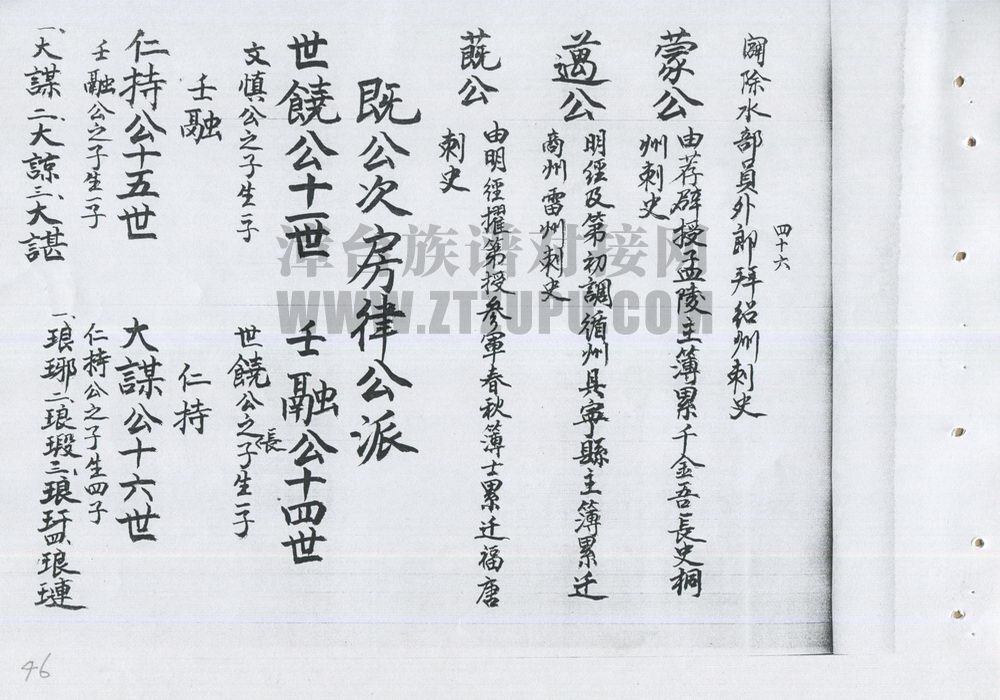 四十六
闕除水部員外郎拜紹州刺史
蒙公
由荐辟授孟陵主簿累千金吾長史桐
州刺史
邁公
明經及第初調循州具寧縣主簿累迁
商州雷州刺史
蔇公
由明經擢第授參軍春秋簿士累迁福唐
刺史
既公次房律公派
世饒公十三世
文慎公之子生一子
壬融
壬融公十四世
世饒公之張子生一子
仁持
仁持公十五世
壬融公之子生三子
一、大謀二、大諒三、大諶
大謀公十六世
仁持公之子生四子
一、琅琊二、琅瑖三、琅玕四、琅璉
漳台族谱对接网
WWW.ZTZUPU.COM
46